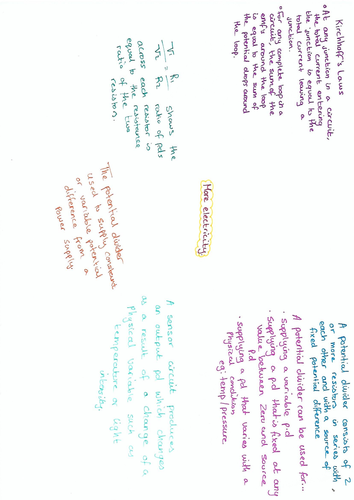 Kirchhoff's Laws
• At any junction in a circuit,
the total current entering
the junction is equal to the
total current leaving a
junction.
• For any complete loop in a
circuit, the sum of the
emfs around the loop
is equal to the sum of
the potential drops around
the loop.
V1 = R1
V2 R2 shows the
ratio of pds
across each resistor is
equal to the resistance
ratio of the two
resistors.
More electricity
• The potential divider
used to supply constant
or variable potential
difference from a
power supply
A potential divider consists of 2
or more resistors in series with
each other and with a source of
fixed potential difference
A potential divider can be used for...
• supplying a variable p.d
• supplying a pd that is fixed at any
value between zero and source
pd
• supplying a pd that varies with a
physical condition
eg: temp/pressure
A sensor circuit produces
an output pd which changes
as a result of a change of a
physical variable such as
temperature or light
intensity.